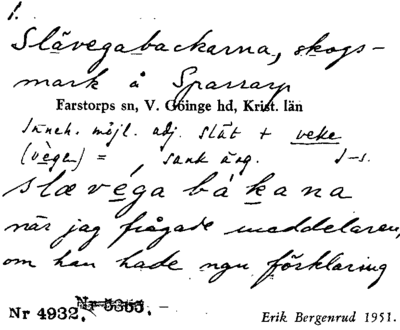 1.
Slävegabackarna, skogs-
mark å Sparrarp
Farstorps sn, V. Göinge hd, Krist. län
Inneh. möjl. adj. slät + veke
(vega) = sank äng. J-s.
slævéga bákana
när jag frågade meddelaren,
om han hade ngn förklaring
Nr 4932. Nr 5355.
Erik Bergenrud 1951.